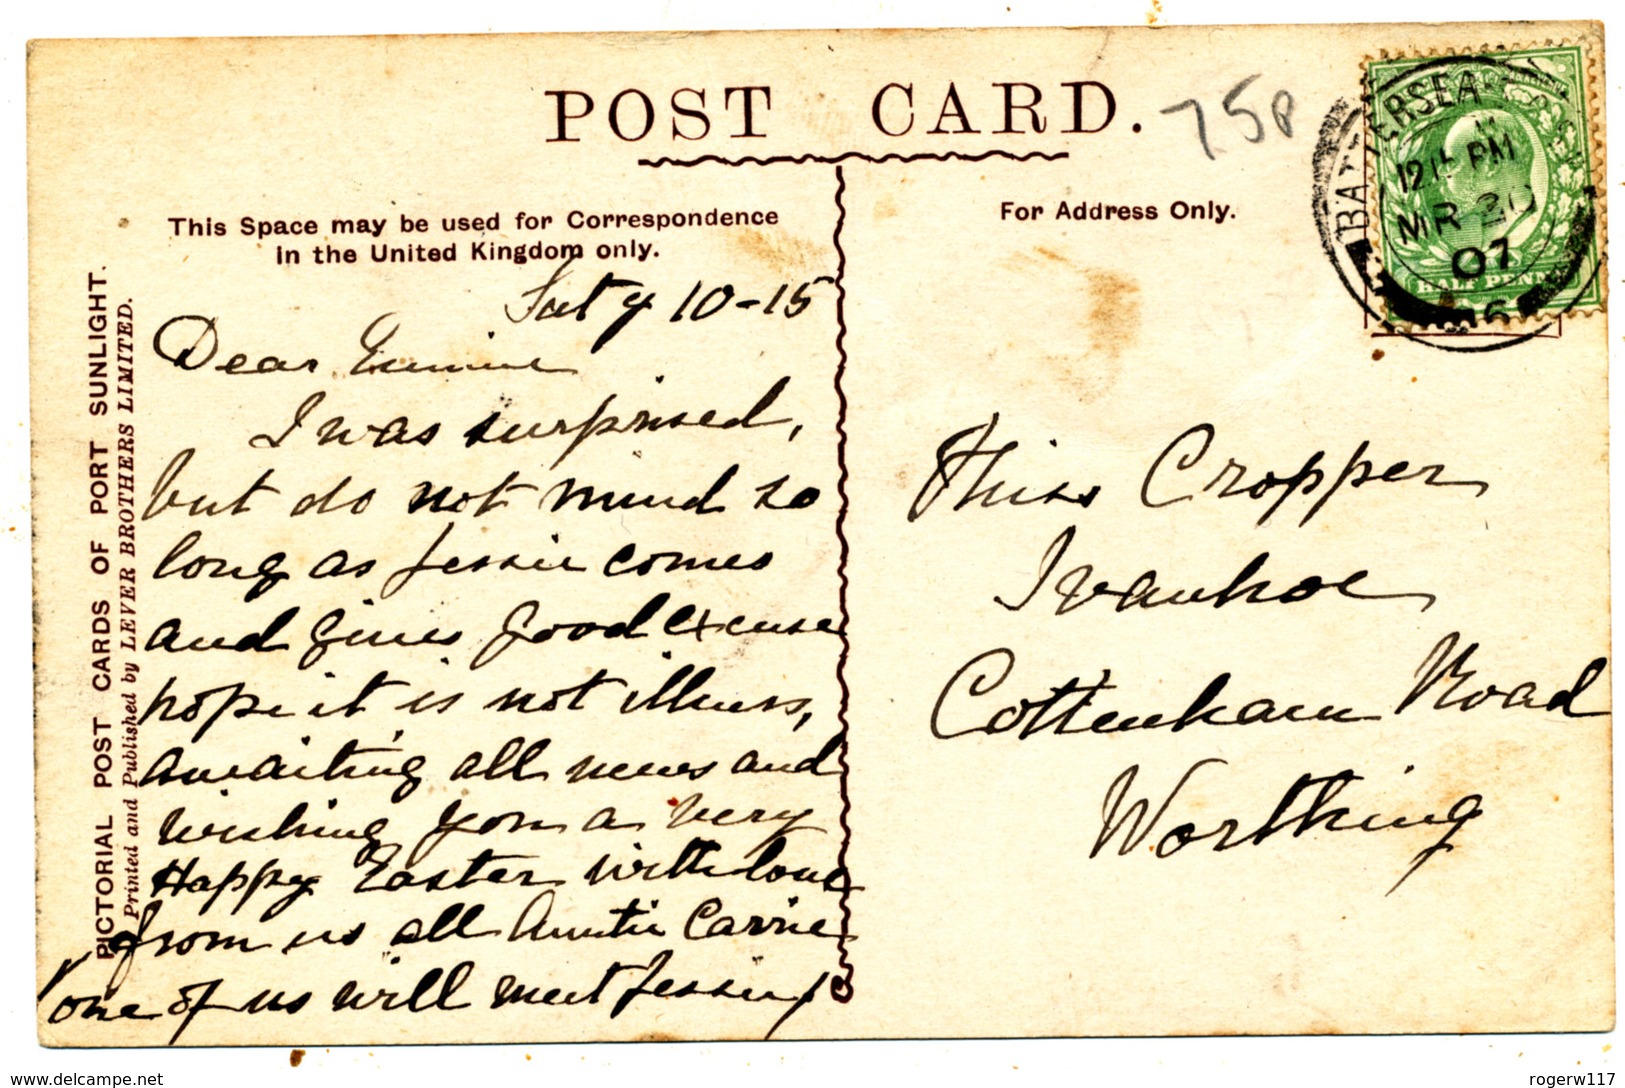 POST CARD.
75p
This Space may be used for Correspondence
in the United Kingdom only.
For Address Only.
BATTERSEA
12 15 PM
MR 30
07
HALF PENNY
PICTORIAL POST CARDS OF PORT SUNLIGHT.
Printed and Published by LEVER BROTHERS LIMITED.
Saty 10-15
Dear
I was surprised,
but do not mind so
long as Jessie comes
and gives good excuse
hope it is not illness,
awaiting all news and
wishing you a very
Happy Easter with love
from us all Auntie Carrie
(one of us will meet Jessie)
Miss Cropper
Ivanhoe
Cottenham Road
Worthing
delcampe.net
rogerw117